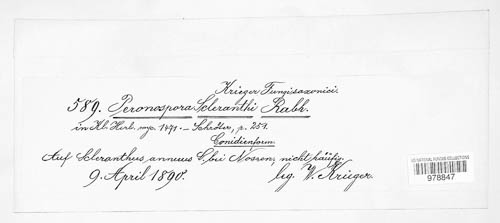 Krieger Fungi saxonici.
589. Peronospora Scleranthi Rabh.
in Kl. Herb. myc. 1471. – Schröter, p. 251.
Conidienform.
Auf Scleranthus annuus L. bei Nossen, nicht häufig.
9. April 1890. leg. W. Krieger.
US NATIONAL FUNGUS COLLECTIONS
978847